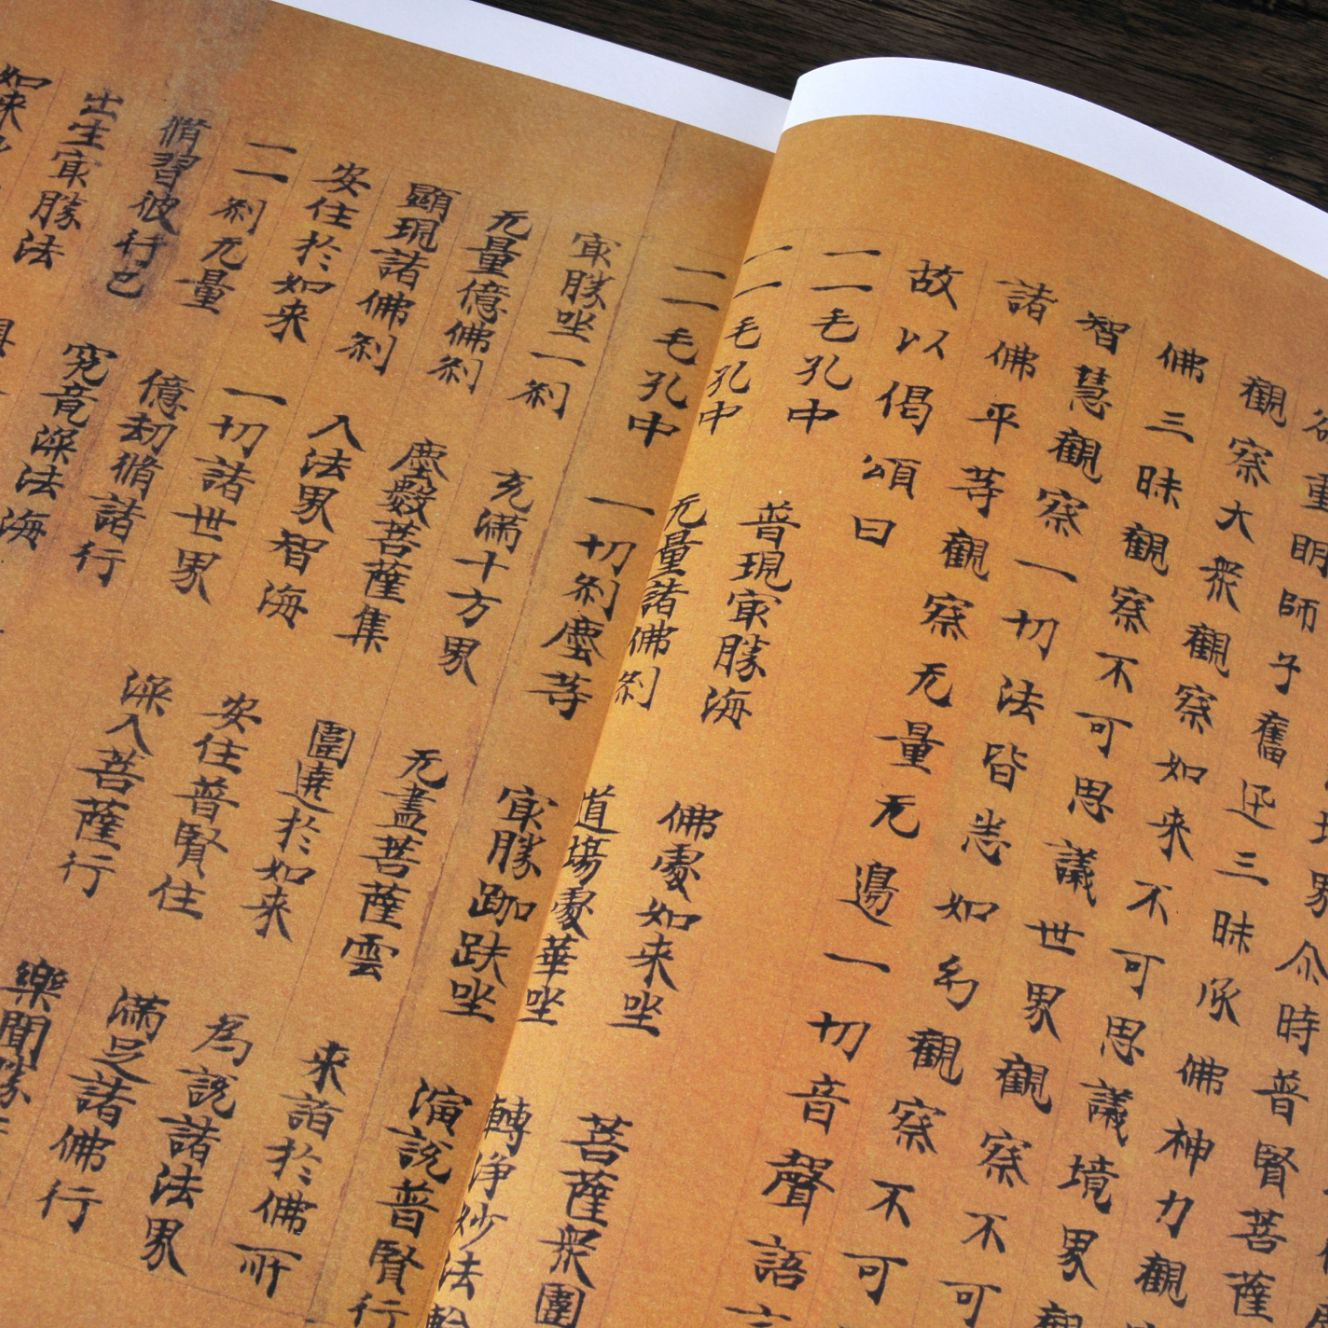 欲重明師子奮迅三昧承佛神力觀
觀察大衆觀察如來不可思議境界
佛三昧觀察不可思議世界觀察不可
智慧觀察一切法皆悉如幻觀察不可
諸佛平等觀察无量无邊一切音聲語言
故以偈頌曰
一一毛孔中 普現冣勝海 佛處如来坐 菩薩衆圍
一一毛孔中 无量諸佛刹 道場處華坐 轉淨妙法輪
一一毛孔中 一切刹塵等 冣勝跏趺坐 演說普賢行
冣勝坐一刹 充滿十方界 无盡菩薩雲 来詣於佛所
无量億佛刹 塵數菩薩集 圍遶於如来 為說諸法界
顯現諸佛刹 入法界智海 安住普賢住 滿足諸佛行
安住於如来 一切諸世界 深入菩薩行 樂聞勝
一一刹无量 億劫脩諸行
脩習彼行已 究竟深法海
出生冣勝法
如来